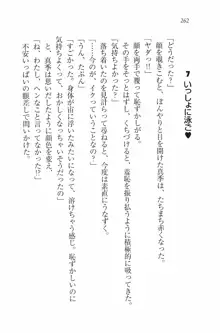 262
7 いっしょに泳ご♥
「どうだった？」
顔を覗きこむと、ぼんやりと目を開けた真季は、たちまち赤くなった。
「ヤダっ!!」
顔を両手で覆って恥ずかしがる。
その手をそっとはずし、キスすると、羞恥を振り払うように積極的に吸ってきた。
「気持ちよかった？」
落ち着いたのを見計らって尋ねると、今度は素直に頷いた。
「……今のが、イクっていうことなの？」
「うん、たぶん」
「身体が宙に浮いたみたいになって、溶けちゃう感じ。恥ずかしいのに
気持ちよくて、おかしくなっちゃいそうだったの」
と、真季の顔色が変わった。
「ね、わたし、ヘンなこと言ってなかった!?」
不安いっぱいの眼差しで訊ねる。